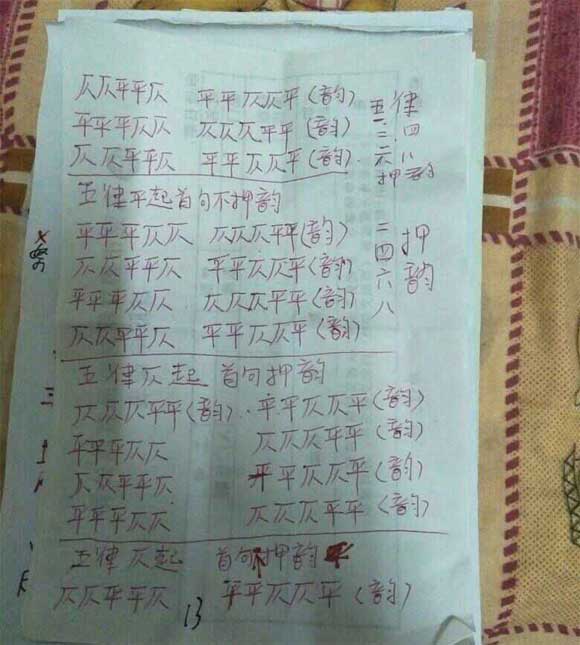 仄仄平平仄 平平仄仄平（韵）
平平平仄仄 仄仄仄平平（韵）
仄仄平平仄 平平仄仄平（韵）
五律
二.四
六八
押韵
五律平起首句不押韵
平平平仄仄 仄仄仄平平（韵）
仄仄平平仄 平平仄仄平（韵）
平平平仄仄 仄仄仄平平（韵）
仄仄平平仄 平平仄仄平（韵）
二四六八
押韵
五律仄起 首句押韵
仄仄仄平平（韵）. 平平仄仄平（韵）
平平平仄仄 仄仄仄平平（韵）
仄仄平平仄 平平仄仄平（韵）
平平平仄仄 仄仄仄平平（韵）
五律仄起 首句不押韵
仄仄平平仄 平平仄仄平（韵）
13